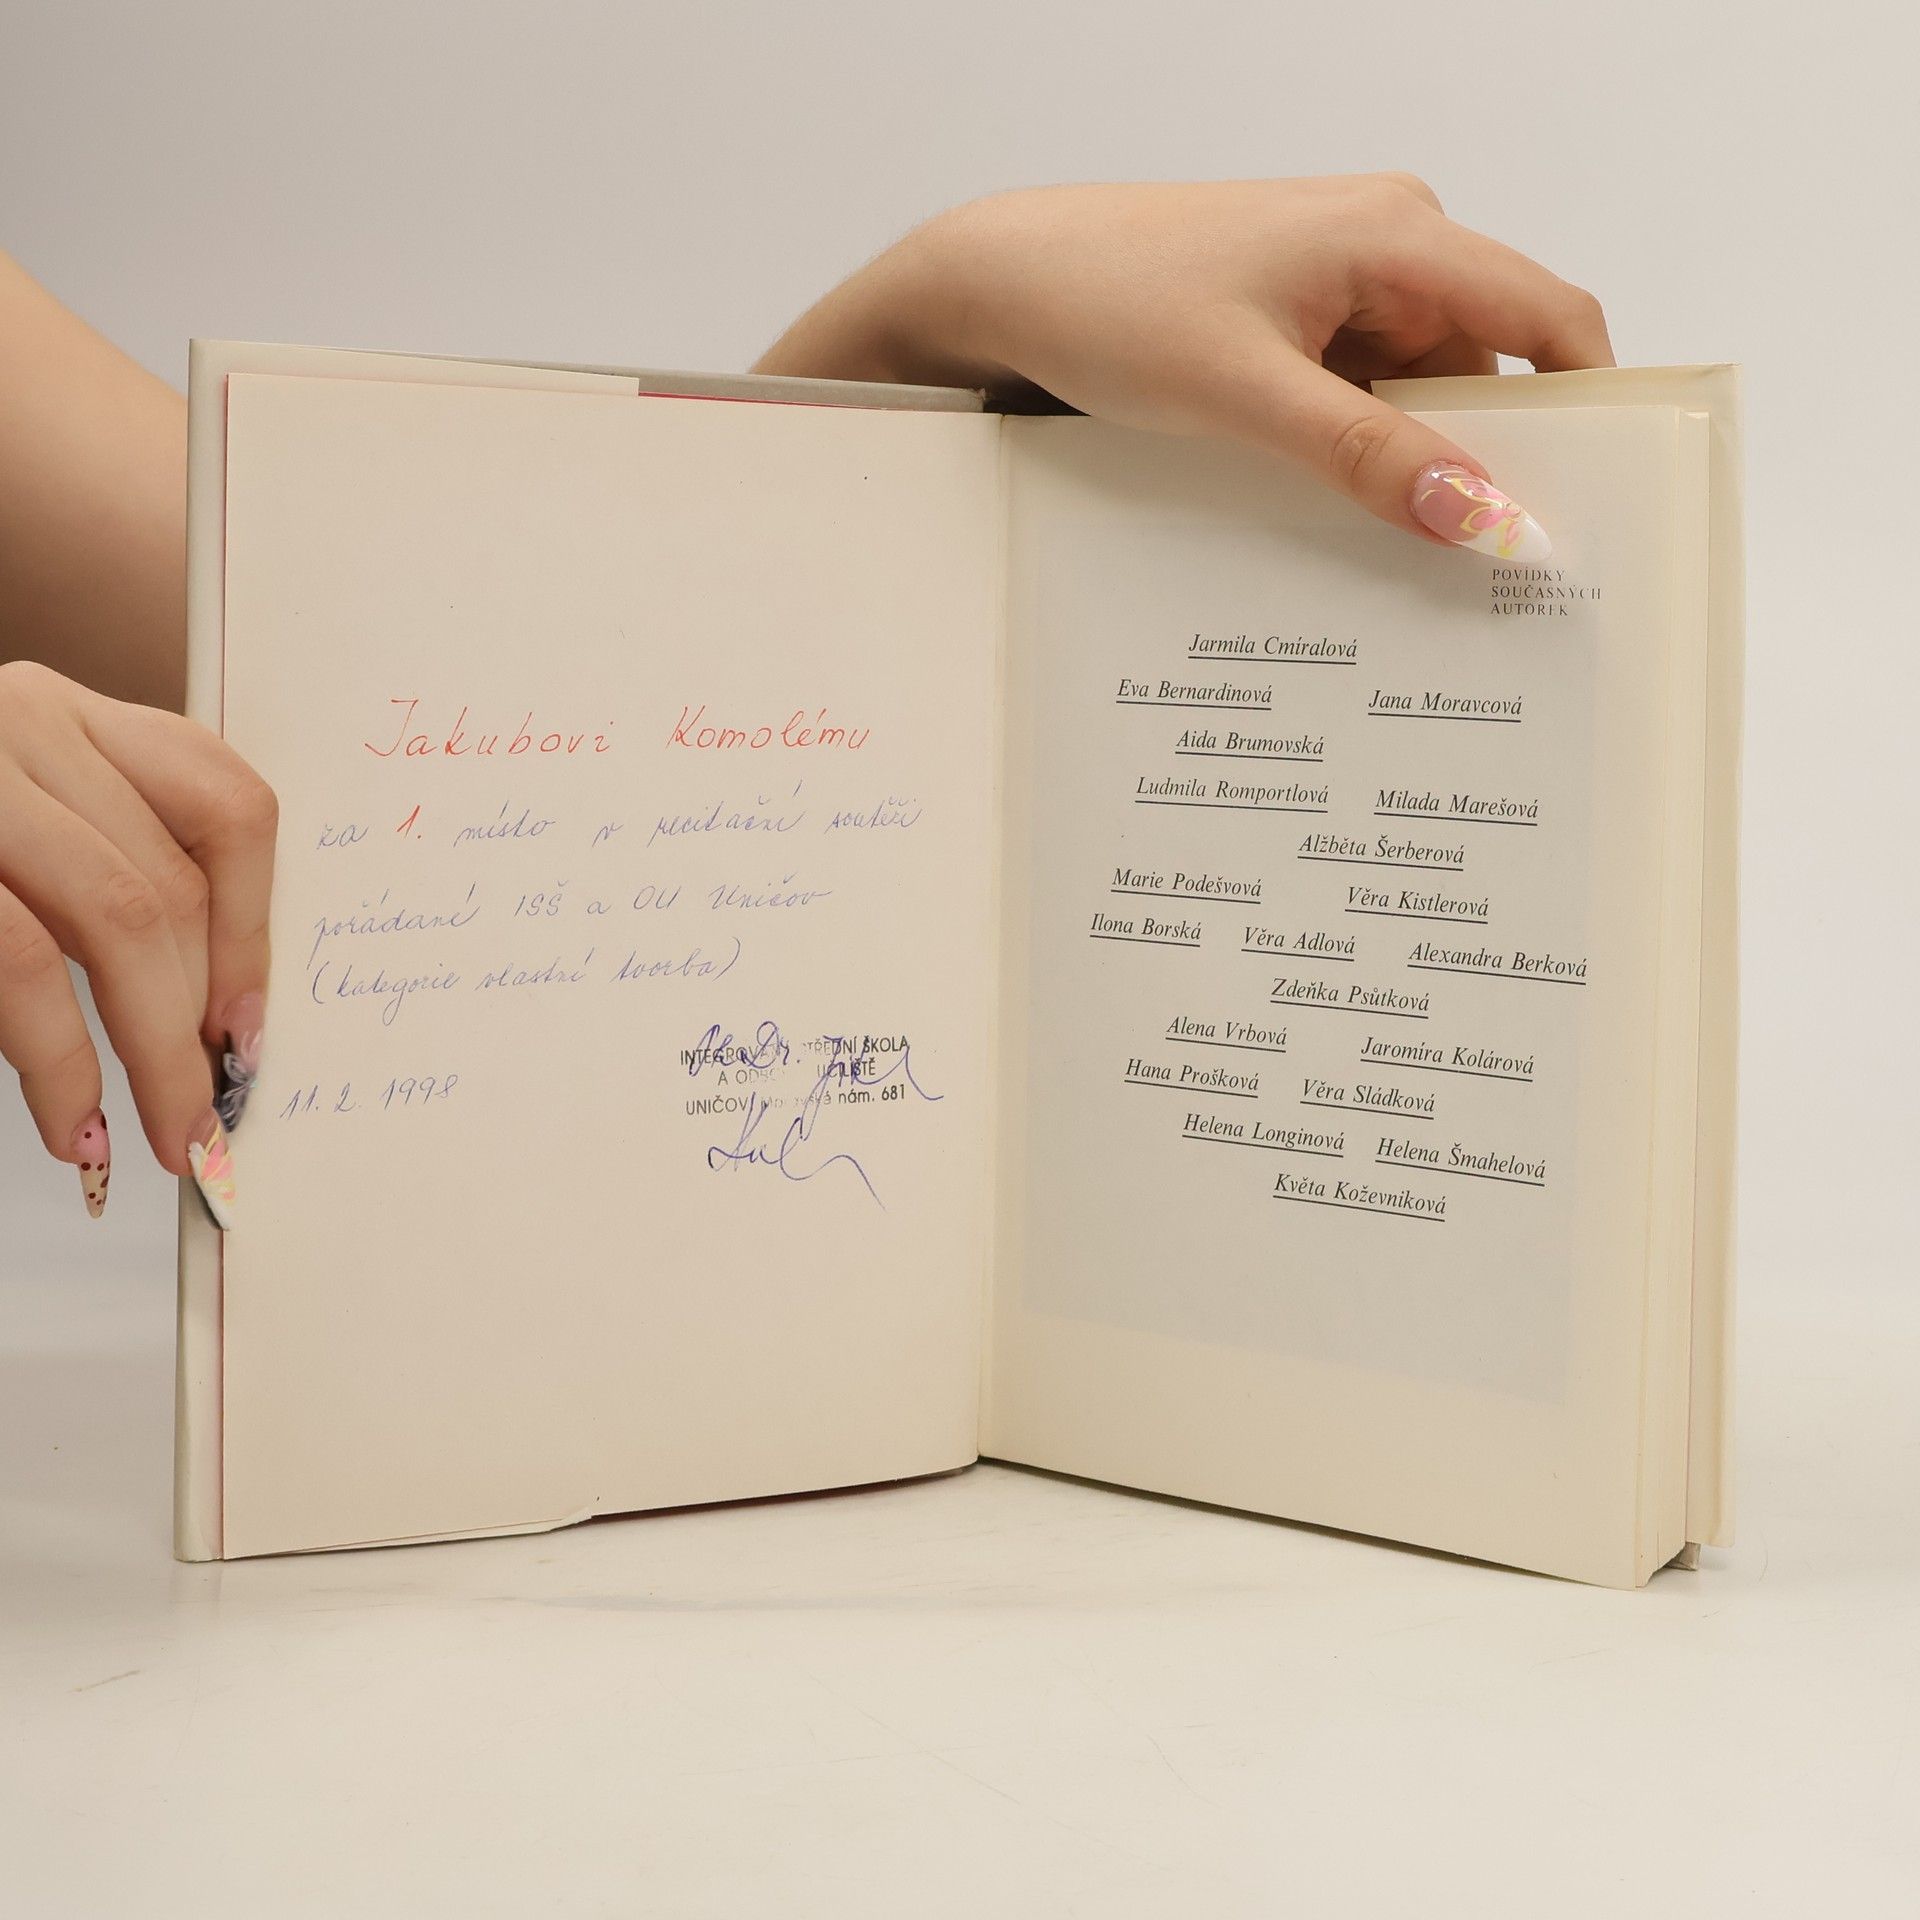 Jakubovi Komolému
za 1. místo v recitační soutěži
pořádané ISŠ a OU Uničov
(kategorie vlastní tvorba)
11. 2. 1998
INTEGROVANÁ STŘEDNÍ ŠKOLA
A ODBORNÉ UČILIŠTĚ
UNIČOV, Moravské nám. 681
POVÍDKY
SOUČASNÝCH
AUTOREK
Jarmila Cmíralová
Eva Bernardinová Jana Moravcová
Aida Brumovská
Ludmila Romportlová Milada Marešová
Alžběta Šerberová
Marie Podešvová Věra Kistlerová
Ilona Borská Věra Adlová Alexandra Berková
Zdeňka Psůtková
Alena Vrbová Jaromíra Kolárová
Hana Prošková Věra Sládková
Helena Longinová Helena Šmahelová
Květa Koževniková